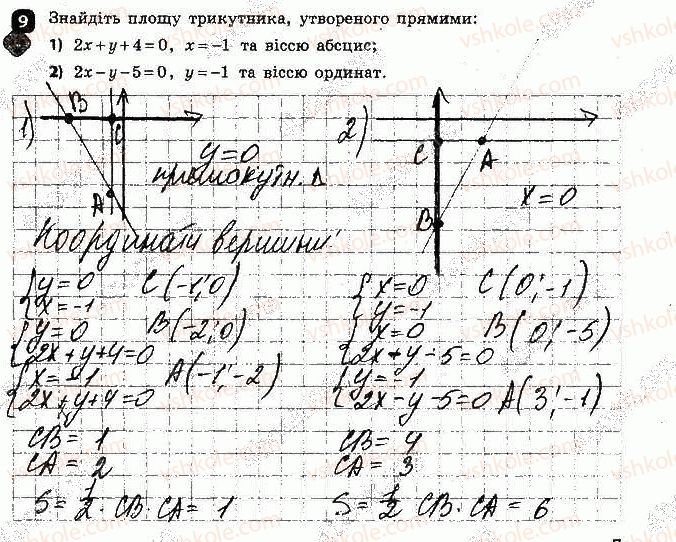 9 Знайдіть площу трикутника, утвореного прямими:
1) 2x+y+4=0, x=−1 та віссю абсцис;
2) 2x−y−5=0, y=−1 та віссю ординат.
1)
B
C
A
y=0
прямокутн. Δ
2)
C
A
B
x=0
Координати вершини:
{ y=0
x=-1
C(-1;0)
{ y=0
2x+y+4=0
B(-2;0)
{ x=-1
2x+y+4=0
A(-1;-2)
CB=1
CA=2
S=1/2·CB·CA=1
{ x=0
y=-1
C(0;-1)
{ x=0
2x+y-5=0
B(0;-5)
{ y=-1
2x-y-5=0
A(3;-1)
CB=4
CA=3
S=1/2 CB·CA=6
vshkole.com